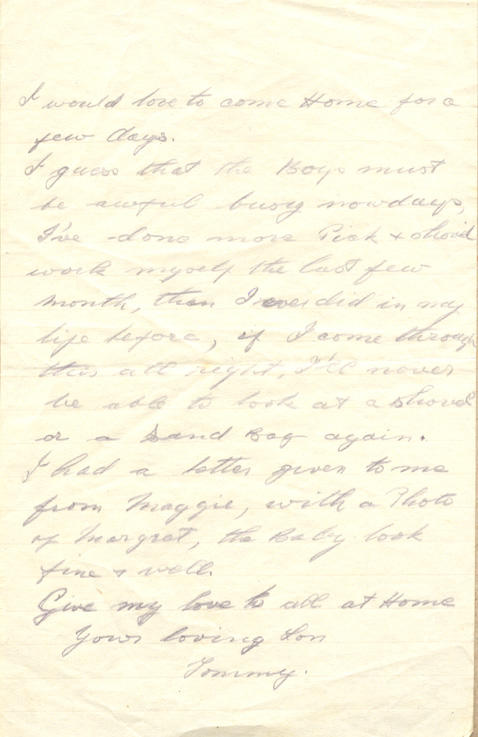 I would love to come Home for a
few days.
I guess that the Boys must
be awful busy nowdays,
I've done more Pick & shovel
work myself the last few
month, than I ever did in my
life before, if I come through
this all right, I'll never
be able to look at a shovel
or a Sand Bag again.
I had a letter given to me
from Maggie, with a Photo
of Margret, the Baby look
fine & well.
Give my love to all at Home
Your loving Son
Tommy.